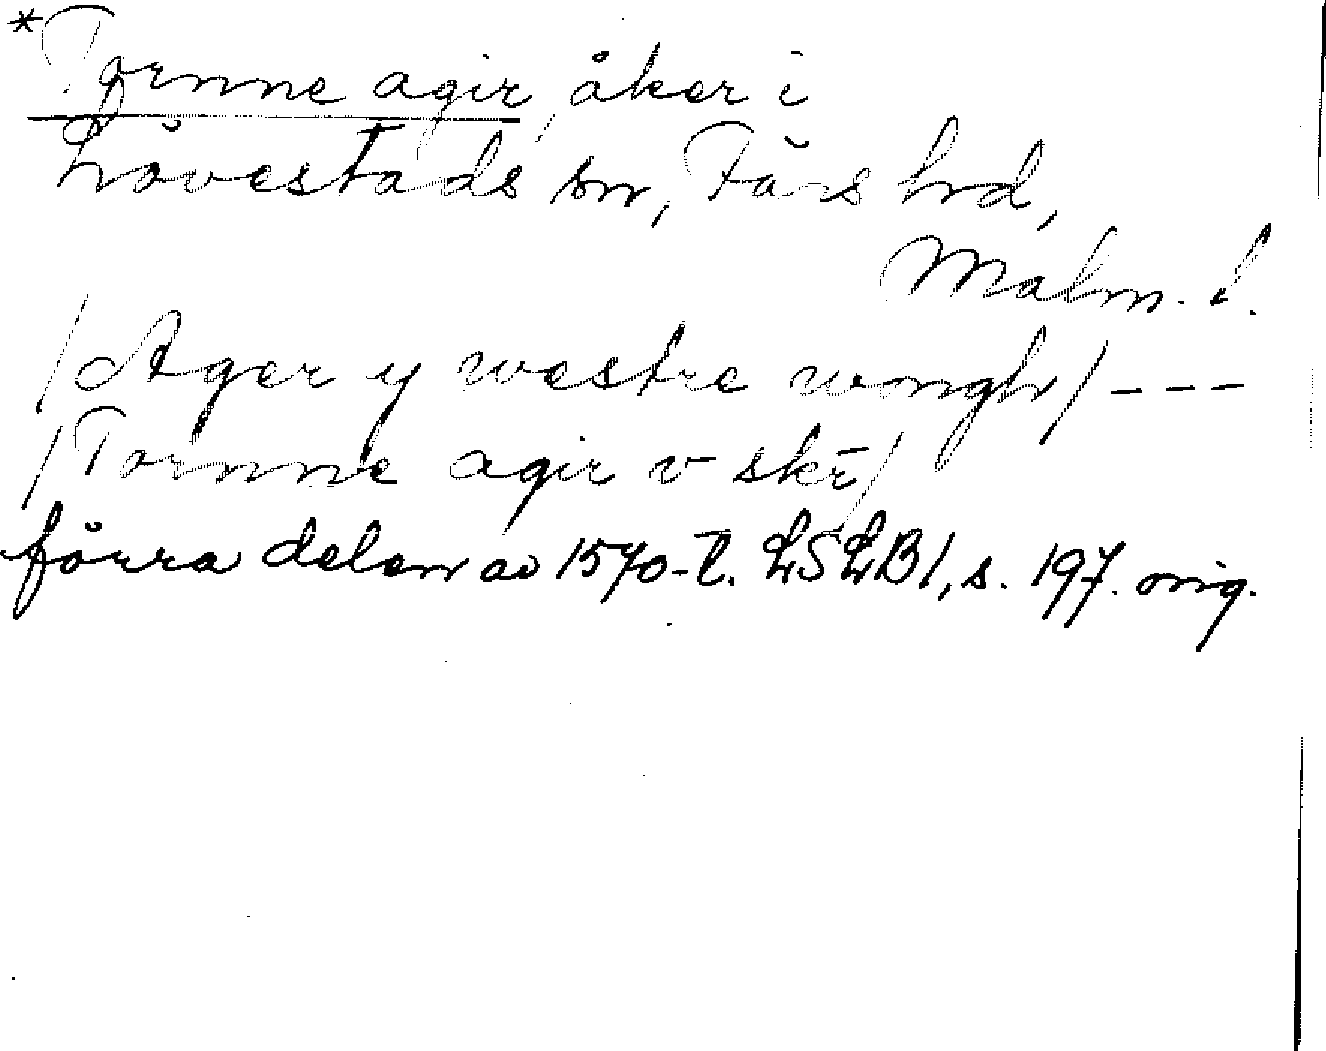 *Tornne agir, åker i
Lövestads sn, Färs hd,
Malm. l.
/Ager y westre wongh/ - - -
/Tornne agir v skē/
förra delen av 1570-t. LSLB1, s. 197. orig.